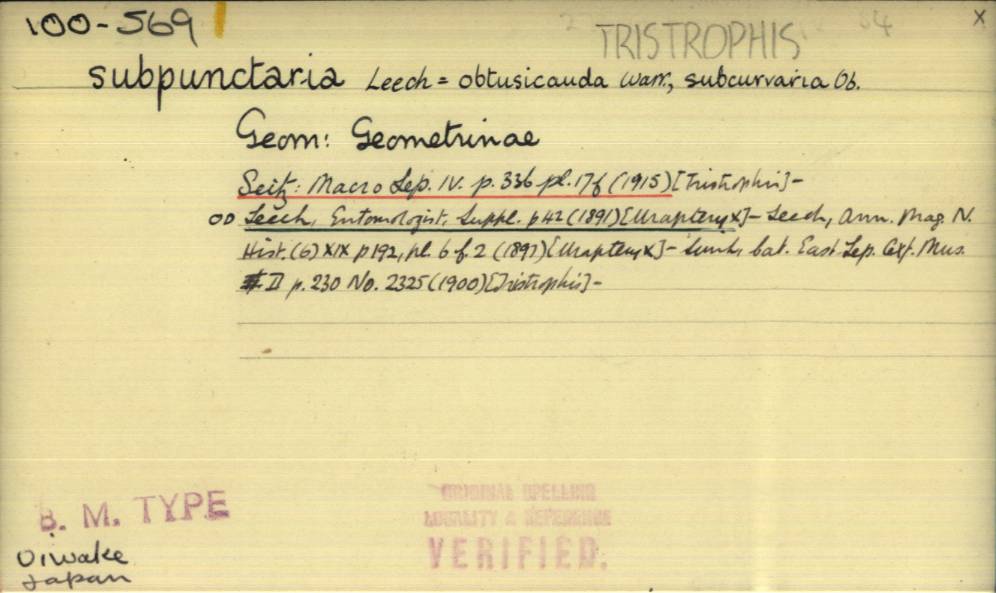 100-569
X
TRISTROPHIS
subpunctaria Leech = obtusicauda Warr., subcurvaria Ob.
Geom: Geometrinae
Seitz: Macro Lep. IV. p. 336 pl. 17f (1915) [Tristrophis] -
OD Leech, Entomologist, Suppl. p 42 (1891) [Urapteryx] - Leech, Ann. Mag. N.
Hist. (6) XIX p 192, pl. 6 f. 2 (1897) [Urapteryx] - Cat. East Lep. Mus.
II p. 230 No. 2325 (1900) [Tristrophis] -
B. M. TYPE
Oiwake
Japan
ORIGINAL SPELLING
LOCALITY & REFERENCE
VERIFIED.